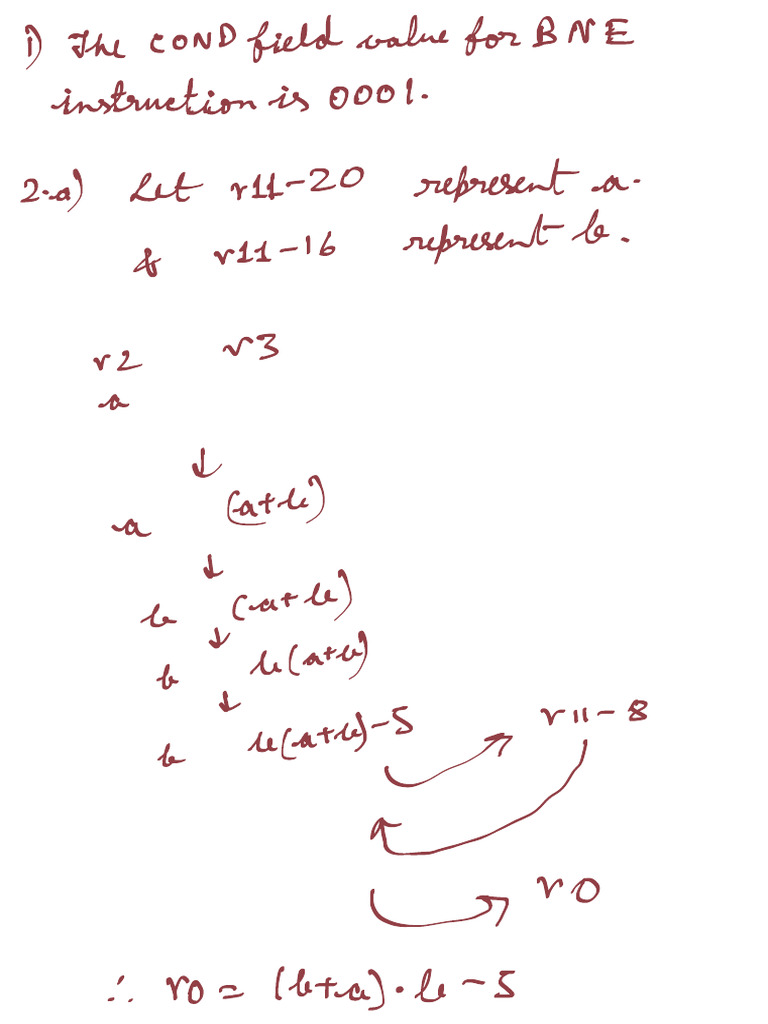 1) The COND field value for BNE
instruction is 0001.
2.a) Let r11-20 represent a.
& r11-16 represent b.
r2 r3
a
↓
a (a+b)
↓
b (a+b)
↓
b b(a+b)
↓
b b(a+b)-5 r11-8
r0
∴ r0 = (b+a).b-5